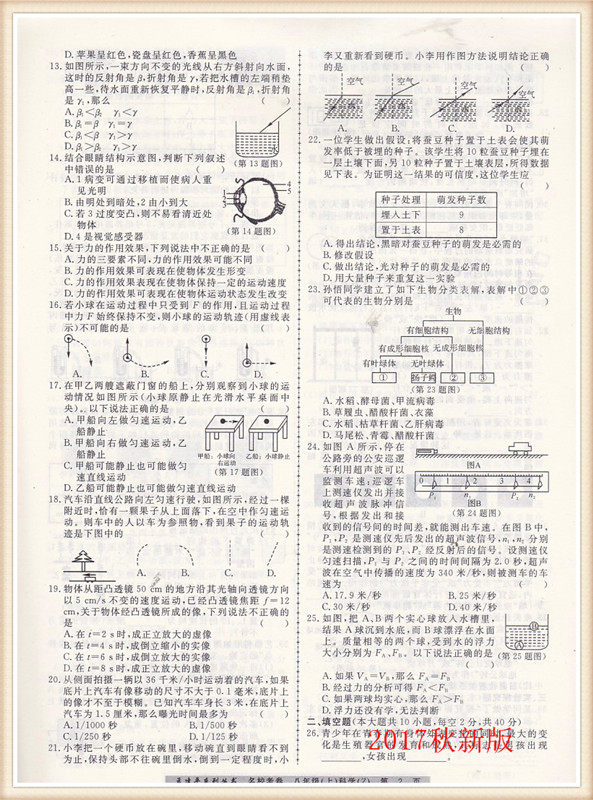 D. 苹果呈红色,瓷盘呈红色,香蕉呈黑色
13. 如图所示,一束方向不变的光线从右方斜射向水面,
这时的反射角是β,折射角是γ,若把水槽的左端稍垫
高一些,待水面重新恢复平静时,反射角是β₁,折射角
是γ₁,那么 ( )
A. β₁<β γ₁<γ
B. β₁=β γ₁=γ
C. β₁<β γ₁>γ
D. β₁>β γ₁>γ
(第13题图)
14. 结合眼睛结构示意图,判断下列叙述
中错误的是 ( )
A. 1病变可通过移植而使病人重
见光明
B. 由明处到暗处,2由小到大
C. 若3过度变凸,则不易看清近处
物体
D. 4是视觉感受器
(第14题图)
15. 关于力的作用效果,下列说法中不正确的是 ( )
A. 力的三要素不同,力的作用效果可能不同
B. 力的作用效果可表现在使物体发生形变
C. 力的作用效果表现在使物体保持一定的运动速度
D. 力的作用效果可表现在使物体运动状态发生改变
16. 若小球在运动过程中只受到F的作用,且运动过程
中力F始终保持不变,则小球的运动轨迹(用虚线表
示)不可能的是 ( )
A. B. C. D.
17. 在甲乙两艘遮蔽门窗的船上,分别观察到小球的运
动情况如图所示(小球原静止在光滑水平桌面中
央)。以下说法正确的是 ( )
A. 甲船向左做匀速运动,乙
船静止
B. 甲船向右做匀速运动,乙
船静止
C. 甲船可能静止也可能做匀
速直线运动
D. 乙船可能静止也可能做匀速直线运动
甲船:小球向
右运动
乙船:小球静止
(第17题图)
18. 汽车沿直线公路向左匀速行驶,如图所示,经过一棵
附近时,恰有一颗果子从上面落下,在空中作匀速运
动。则车中的人以车为参照物,看到果子的运动轨
迹是下图中的 ( )
A. B. C. D.
19. 物体从距凸透镜50 cm的地方沿其光轴向透镜方向
以5 cm/s不变的速度运动,已经凸透镜焦距f=12
cm,关于物体经凸透镜所成的像,下列说法不正确的
是 ( )
A. 在t=2 s时,成正立放大的虚像
B. 在t=4 s时,成倒立缩小的实像
C. 在t=6 s时,成倒立放大的实像
D. 在t=8 s时,成正立放大的虚像
20. 从侧面拍摄一辆以36千米/小时运动着的汽车,如果
底片上汽车有像移动的尺寸不大于0.1毫米,底片上
的像才不至于模糊。已知汽车车身长3米,在底片上
汽车为1.5厘米,那么曝光时间最多为 ( )
A. 1/1000秒 B. 1/500秒
C. 1/250秒 D. 1/125秒
21. 小李把一个硬币放在碗里,移动碗直到眼睛看不到
为止,保持头部不往碗里倒水,倒到一定程度时,小
李又重新看到硬币。小李用作图方法说明结论正确
的是 ( )
空气 空气 空气 空气
A. B. C. D.
22. 一位学生做出假设:将蚕豆种子置于土表会使其萌
发率低于被埋的种子。该学生将10粒蚕豆种子埋在
一层土壤下面,另10粒种子置于土壤表层,所得数据
见下表。为证明这一结果的可信度,这位学生应
( )
种子处理 萌发种子数
埋入土下 9
置于土表 8
A. 得出结论,黑暗对蚕豆种子的萌发是必需的
B. 修改假设
C. 做出结论,光对种子的萌发是必需的
D. 用大量种子来重复这一实验
23. 孙悟同学建立了如下生物分类表解,表解中①②③
可代表的生物分别是 ( )
生物
有细胞结构 无细胞结构
有成形细胞核 无成形细胞核
有叶绿体 无叶绿体
① 肠子鳄 ② ③
(第23题图)
A. 水稻、酵母菌、甲流病毒
B. 草履虫、醋酸杆菌、衣藻
C. 水稻、枯草杆菌、乙肝病毒
D. 马尾松、青霉、醋酸杆菌
24. 如图A所示,停在
公路旁的公安巡逻
车利用超声波可以
监测车速:巡逻车
上测速仪发出并接
收超声波脉冲信
号,根据发出和接
图A
0 1 2 3 4 5
P₁ n₁ P₂ n₂
图B
(第24题图)
收到的信号间的时间差,就能测出车速。在图B中,
P₁、P₂是测速仪先后发出的超声波信号,n₁、n₂分别
是测速检测到的P₁、P₂经反射后的信号。设测速仪
匀速扫描,P₁与P₂之间的时间间隔为2.0秒,超声
波在空气中传播的速度为340米/秒,则被测车的车
速为 ( )
A. 17.9米/秒 B. 25米/秒
C. 30米/秒 D. 40米/秒
25. 如图,把A、B两个实心球放入水槽里,
结果A球沉到水底,而B球漂浮在水面
上。质量相等的两个球,受到水的浮力
大小分别为FA、FB。以下说法正确的是
( )
(第25题图)
A. 如果VA=VB,那么FA=FB
B. 经过力的分析可得FA<FB
C. 如果两球均实心,那么FA>FB
D. 浮力还没有学,无法判断
二、填空题(本大题共10小题,每空2分,共40分)
26. 青少年在青春期有
化是生殖器官发育和
,女孩出现 。
2017秋新版
名校考卷 八年级(上)科学(Z) 第 2 页